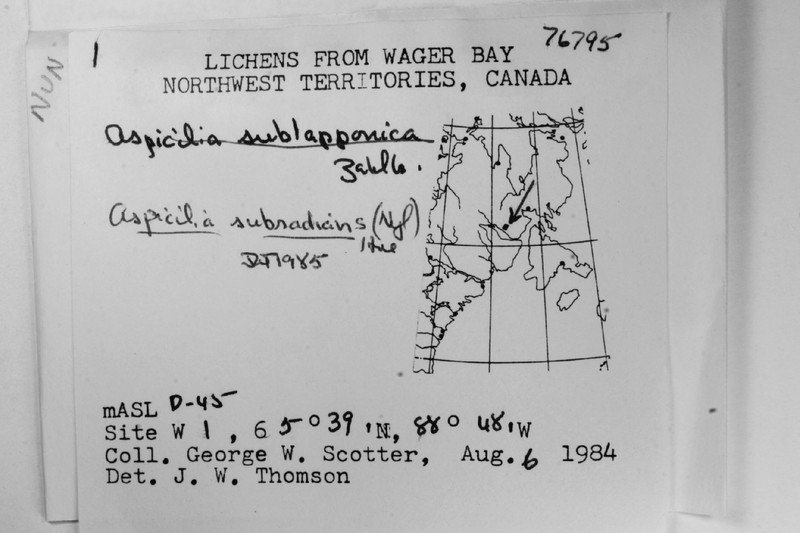 NUN
1
76795
LICHENS FROM WAGER BAY
NORTHWEST TERRITORIES, CANADA
Aspicilia sublapponica
Zahlb.
Aspicilia subradians (Nyl)
Hue
DJ 1985
mASL 0-45
Site W 1, 65°39'N, 88° 48'W
Coll. George W. Scotter, Aug. 6 1984
Det. J. W. Thomson